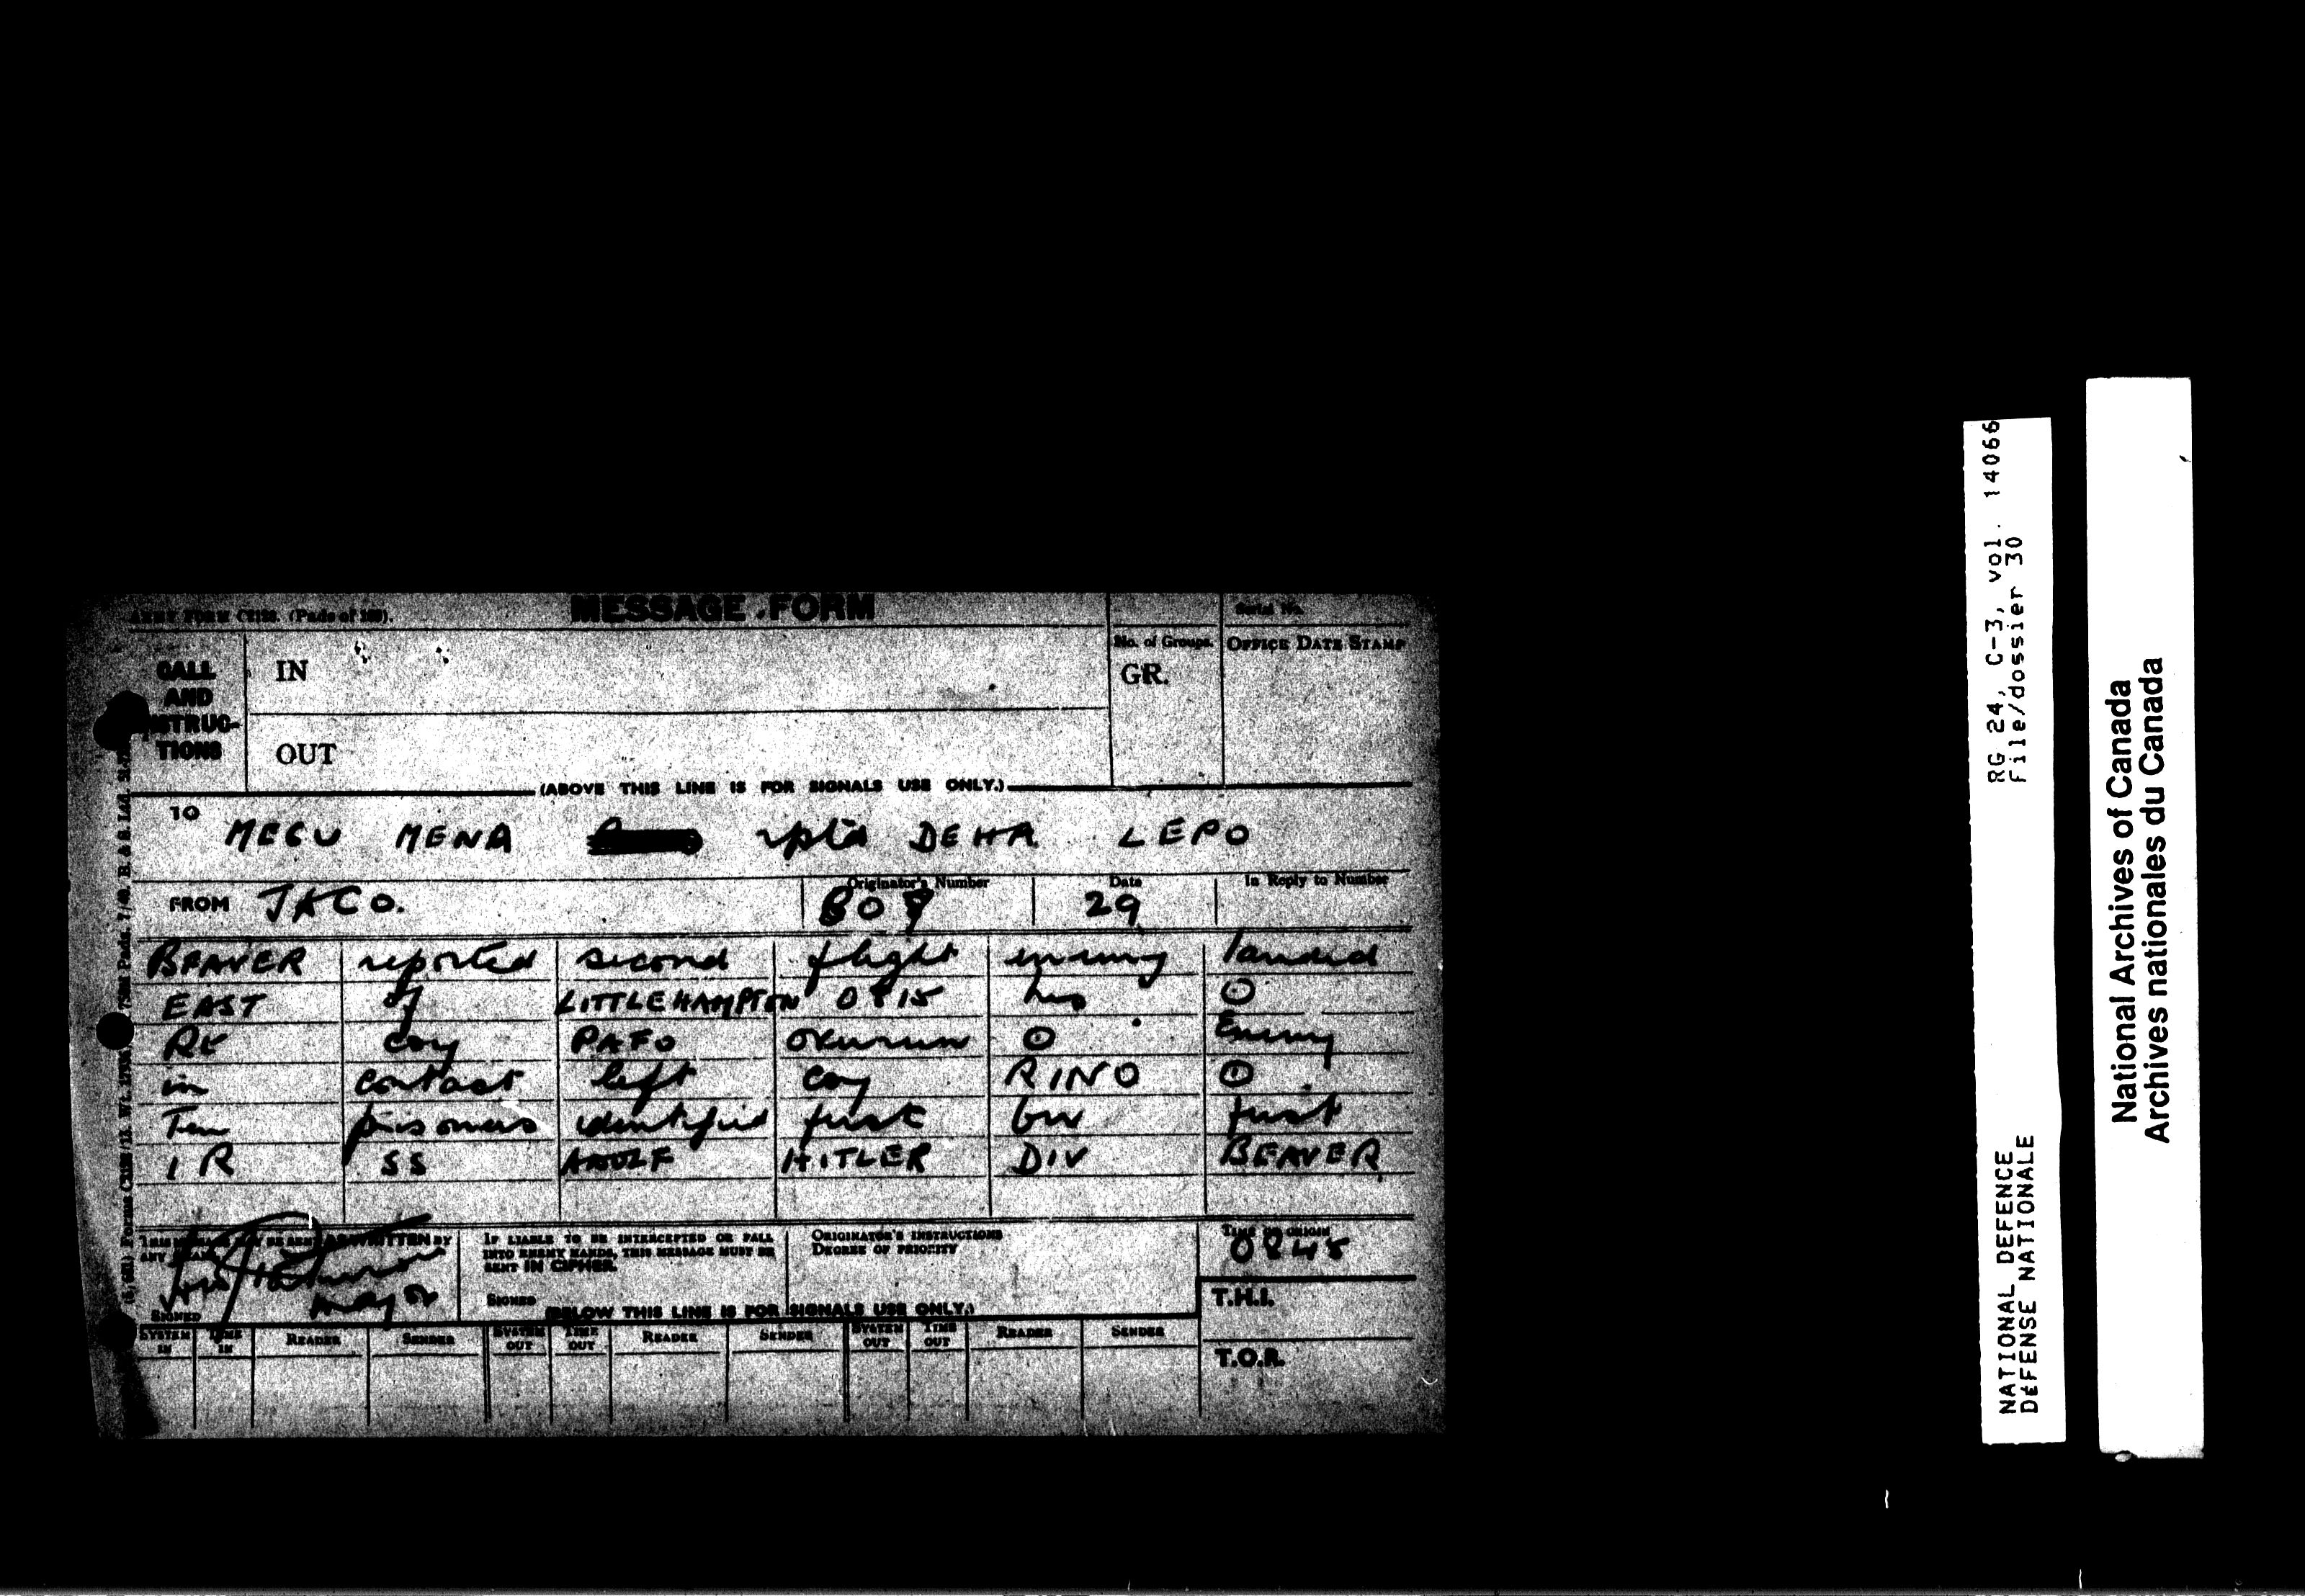 MESSAGE FORM
(Pads of 100).
Serial No.
CALL AND INSTRUC-TIONS
IN
No. of Groups.
GR.
OFFICE DATE STAMP
OUT
(ABOVE THIS LINE IS FOR SIGNALS USE ONLY.)
TO MECU MENA rptd DEHA LEPO
FROM JACO. Originator's Number Date 29 In Reply to Number
BEAVER reported second flight enemy landed
EAST of LITTLEHAMPTON 0815 hrs ⊙
Rt coy PAFO overrun ⊙ Enemy
in contact left coy RINO ⊙
Ten prisoners identified first bn first
IR SS ADOLF HITLER DIV BEAVER
IF LIABLE TO BE INTERCEPTED OR FALL
INTO ENEMY HANDS, THIS MESSAGE MUST BE
SENT IN CIPHER.
SIGNED
ORIGINATOR'S INSTRUCTIONS
DEGREE OF PRIORITY
TIME OF ORIGIN
0845
T.H.I.
SIGNED
(BELOW THIS LINE IS FOR SIGNALS USE ONLY.)
SYSTEM IN TIME IN READER SENDER SYSTEM OUT TIME OUT READER SENDER SYSTEM OUT TIME OUT READER SENDER
T.O.R.
RG 24, C-3, vol. 14066
File/dossier 30
NATIONAL DEFENCE
DÉFENSE NATIONALE
National Archives of Canada
Archives nationales du Canada